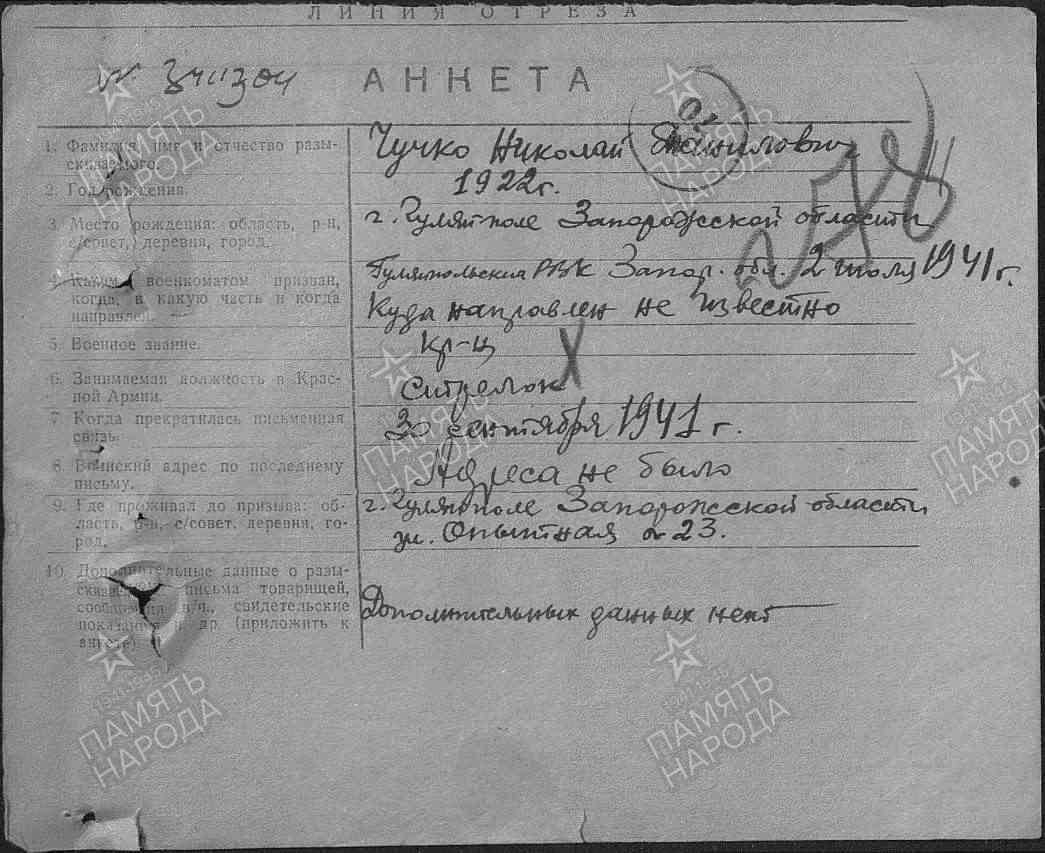 ЛИНИЯ ОТРЕЗА
АНКЕТА
1. Фамилия, имя и отчество разы-
скиваемого.
Чучко Николай Данилович
2. Год рождения.
1922 г.
3. Место рождения: область, р-н,
с/совет, деревня, город.
г. Гуляйполе Запорожсской области
4. Каким военкоматом призван,
когда, в какую часть и когда
направлен.
Гуляйпольский РВК Запор. обл. 2 июля 1941 г.
Куда направлен не известно
5. Военное звание.
Кр-ц
6. Занимаемая должность в Крас-
ной Армии.
Стрелок
7. Когда прекратилась письменная
связь.
30 сентября 1941 г.
8. Воинский адрес по последнему
письму.
Адреса не было
9. Где проживал до призыва: об-
ласть, р-н, с/совет, деревня, го-
род.
г. Гуляйполе Запорожсской области
ул. Опытная № 23.
10. Дополнительные данные о разы-
скиваемом: письма товарищей,
сообщения в/ч., свидетельские
показания и др. (приложить к
анкете)
Дополнительных данных нет
ПАМЯТЬ
НАРОДА
ПАМЯТЬ
НАРОДА
ПАМЯТЬ
НАРОДА
ПАМЯТЬ
НАРОДА
ПАМЯТЬ
НАРОДА
ПАМЯТЬ
НАРОДА